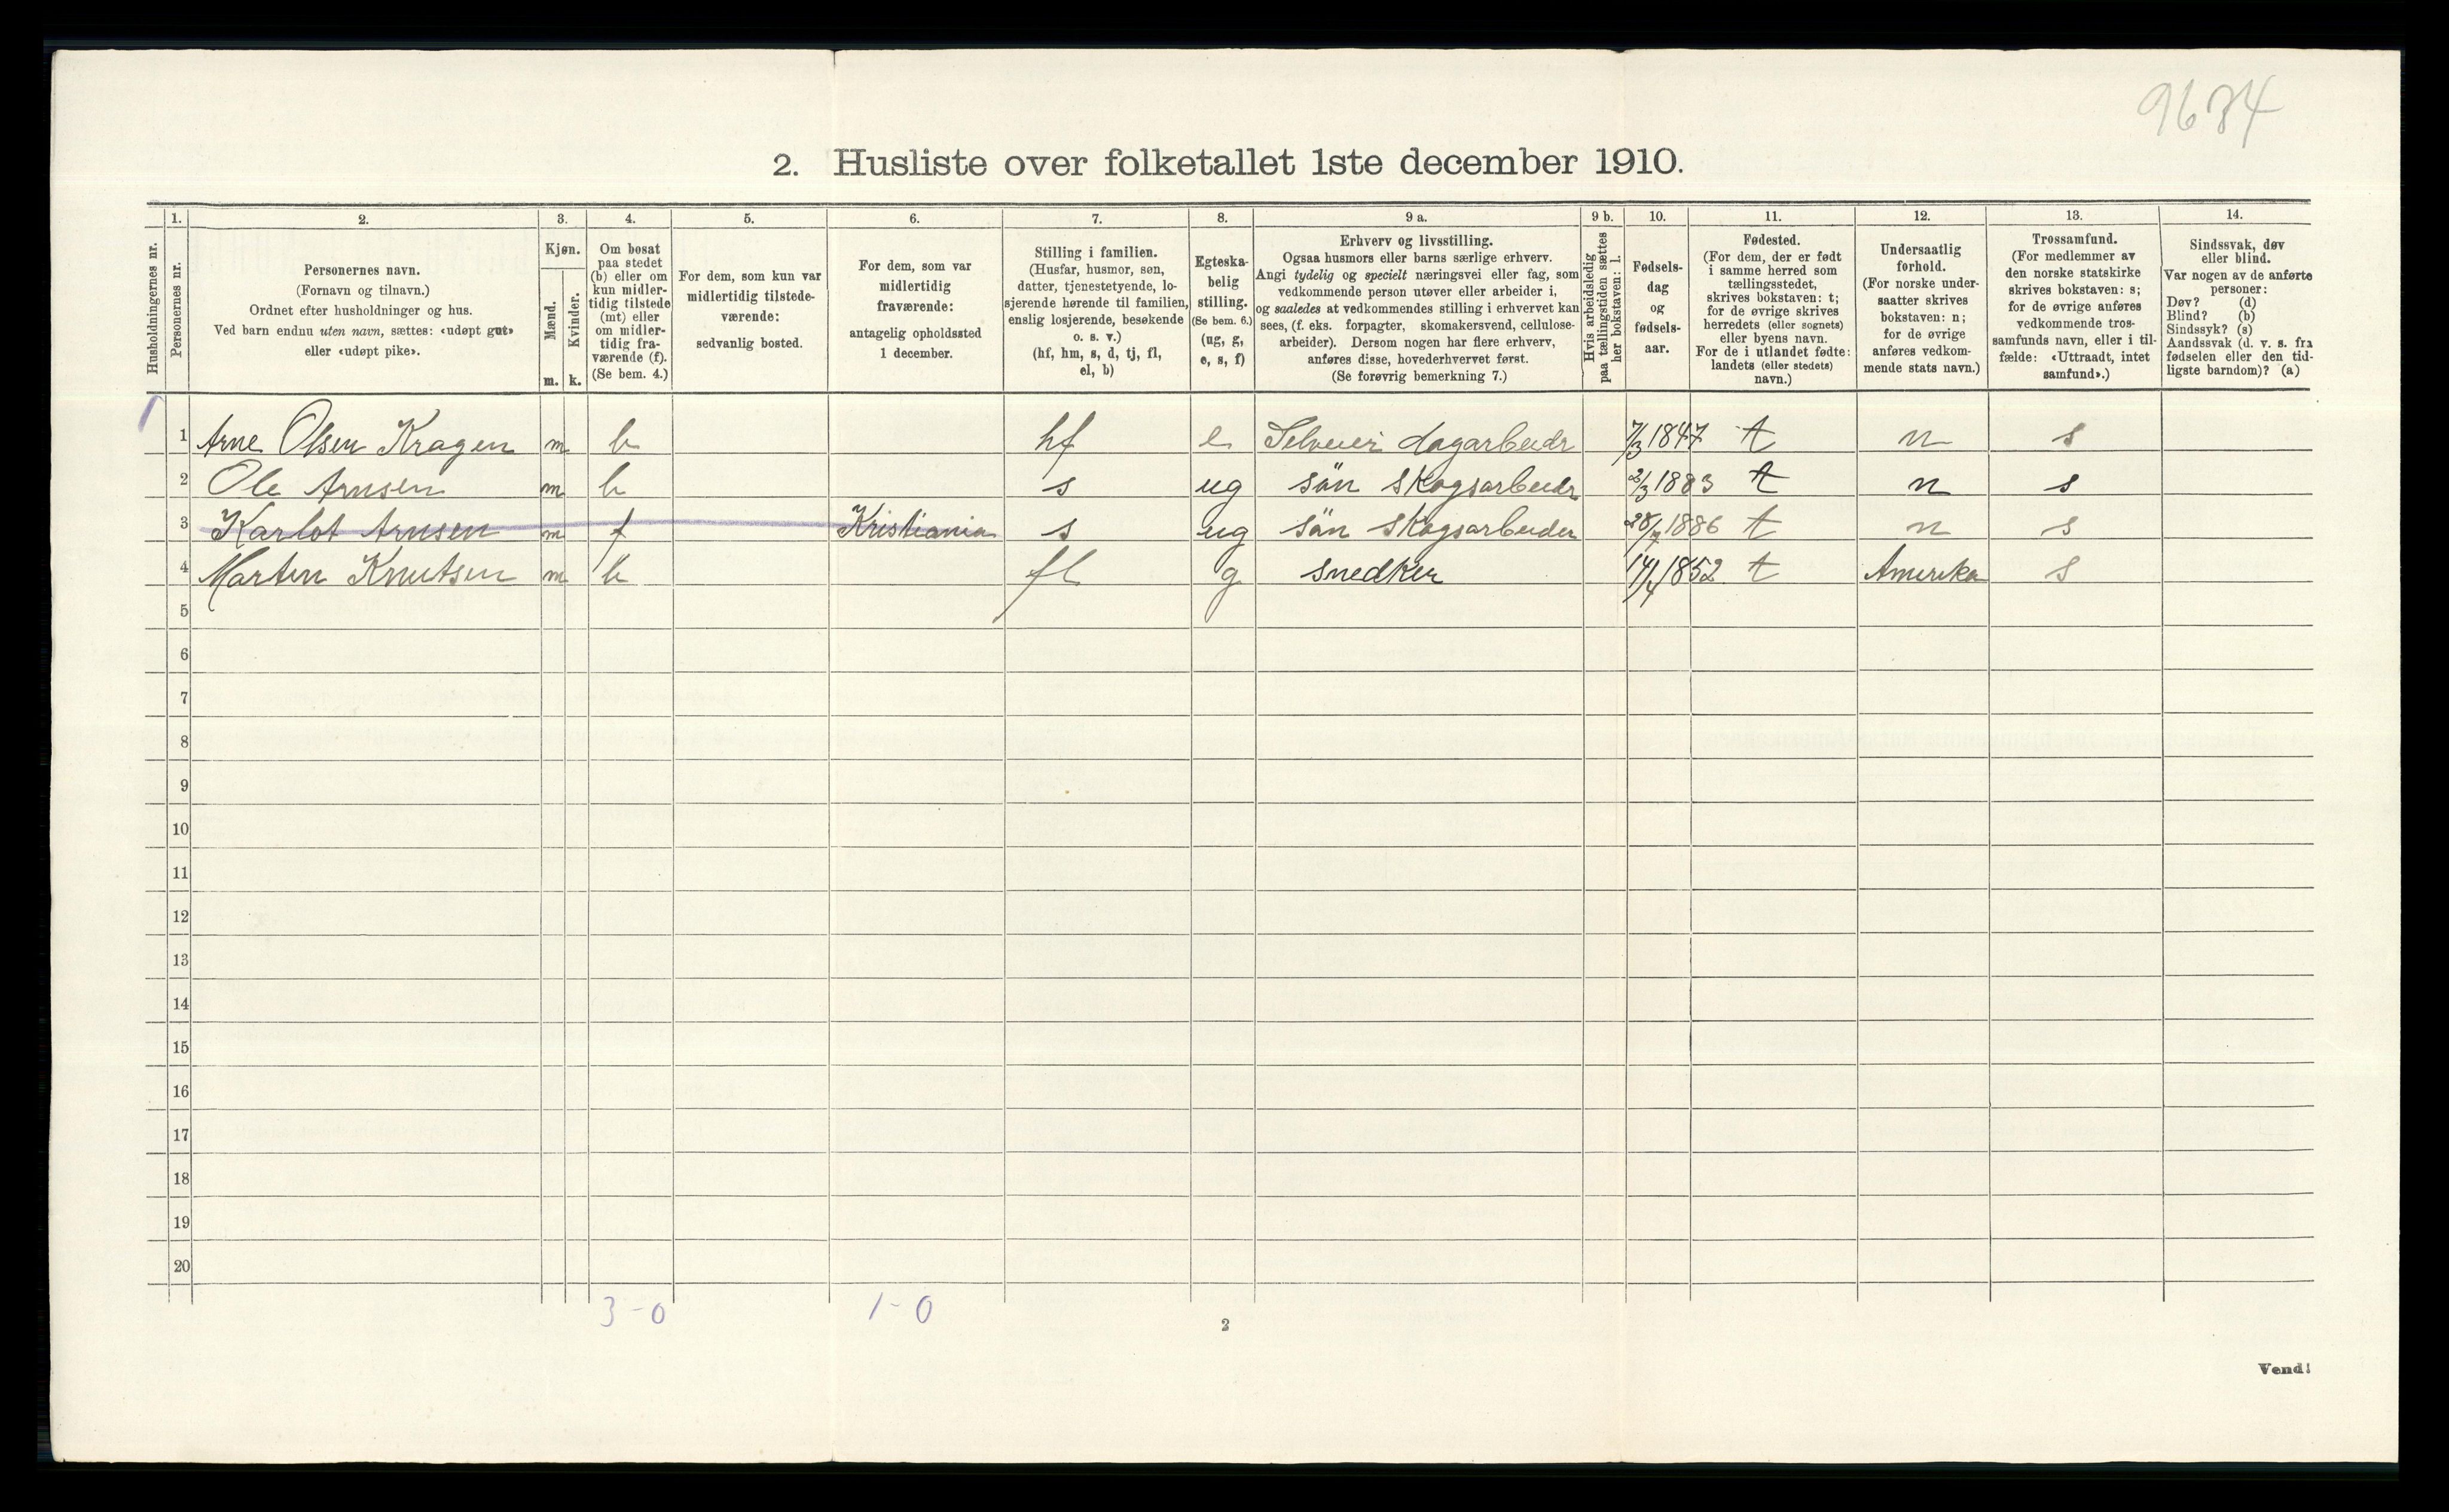 9684
2. Husliste over folketallet 1ste december 1910.
Husholdningernes nr.
1.
Personernes nr.
2.
Personernes navn.
(Fornavn og tilnavn.)
Ordnet efter husholdninger og hus.
Ved barn endnu uten navn, sættes: «udøpt gut»
eller «udøpt pike».
3.
Kjøn.
Mænd.
m.
Kvinder.
k.
4.
Om bosat
paa stedet
(b) eller om
kun midler-
tidig tilstede
(mt) eller
om midler-
tidig fra-
værende (f).
(Se bem. 4.)
5.
For dem, som kun var
midlertidig tilstede-
værende:
sedvanlig bosted.
6.
For dem, som var
midlertidig
fraværende:
antagelig opholdssted
1 december.
7.
Stilling i familien.
(Husfar, husmor, søn,
datter, tjenestetyende, lo-
sjerende hørende til familien,
enslig losjerende, besøkende
o. s. v.)
(hf, hm, s, d, tj, fl,
el, b)
8.
Egteska-
belig
stilling.
(Se bem. 6.)
(ug, g,
e, s, f)
9 a.
Erhverv og livsstilling.
Ogsaa husmors eller barns særlige erhverv.
Angi tydelig og specielt næringsvei eller fag, som
vedkommende person utøver eller arbeider i,
og saaledes at vedkommendes stilling i erhvervet kan
sees, (f. eks. forpagter, skomakersvend, cellulose-
arbeider). Dersom nogen har flere erhverv,
anføres disse, hovederhvervet først.
(Se forøvrig bemerkning 7.)
9 b.
Hvis arbeidsledig
paa tællingstiden sættes
her bokstaven: l.
10.
Fødsels-
dag
og
fødsels-
aar.
11.
Fødested.
(For dem, der er født
i samme herred som
tællingsstedet,
skrives bokstaven: t;
for de øvrige skrives
herredets (eller sognets)
eller byens navn.
For de i utlandet fødte:
landets (eller stedets)
navn.)
12.
Undersaatlig
forhold.
(For norske under-
saatter skrives
bokstaven: n;
for de øvrige
anføres vedkom-
mende stats navn.)
13.
Trossamfund.
(For medlemmer av
den norske statskirke
skrives bokstaven: s;
for de øvrige anføres
vedkommende tros-
samfunds navn, eller i til-
fælde: «Uttraadt, intet
samfund».)
14.
Sindssvak, døv
eller blind.
Var nogen av de anførte
personer:
Døv? (d)
Blind? (b)
Sindssyk? (s)
Aandssvak (d. v. s. fra
fødselen eller den tid-
ligste barndom)? (a)
1 1 Arne Olsen Kragen m b hf e Selveier dagarbeidr 7/3 1847 t n s
2 Ole Arnsen m b s ug sän skogsarbeidr 2/3 1883 t n s
3 Karlot Arnsen m f Kristiania s ug sän skogsarbeider 28/7 1886 t n s
4 Marten Knutsen m b fl g snedker 14/4 1852 t Amerika s
5
6
7
8
9
10
11
12
13
14
15
16
17
18
19
20
3-0 1-0
2
Vend!